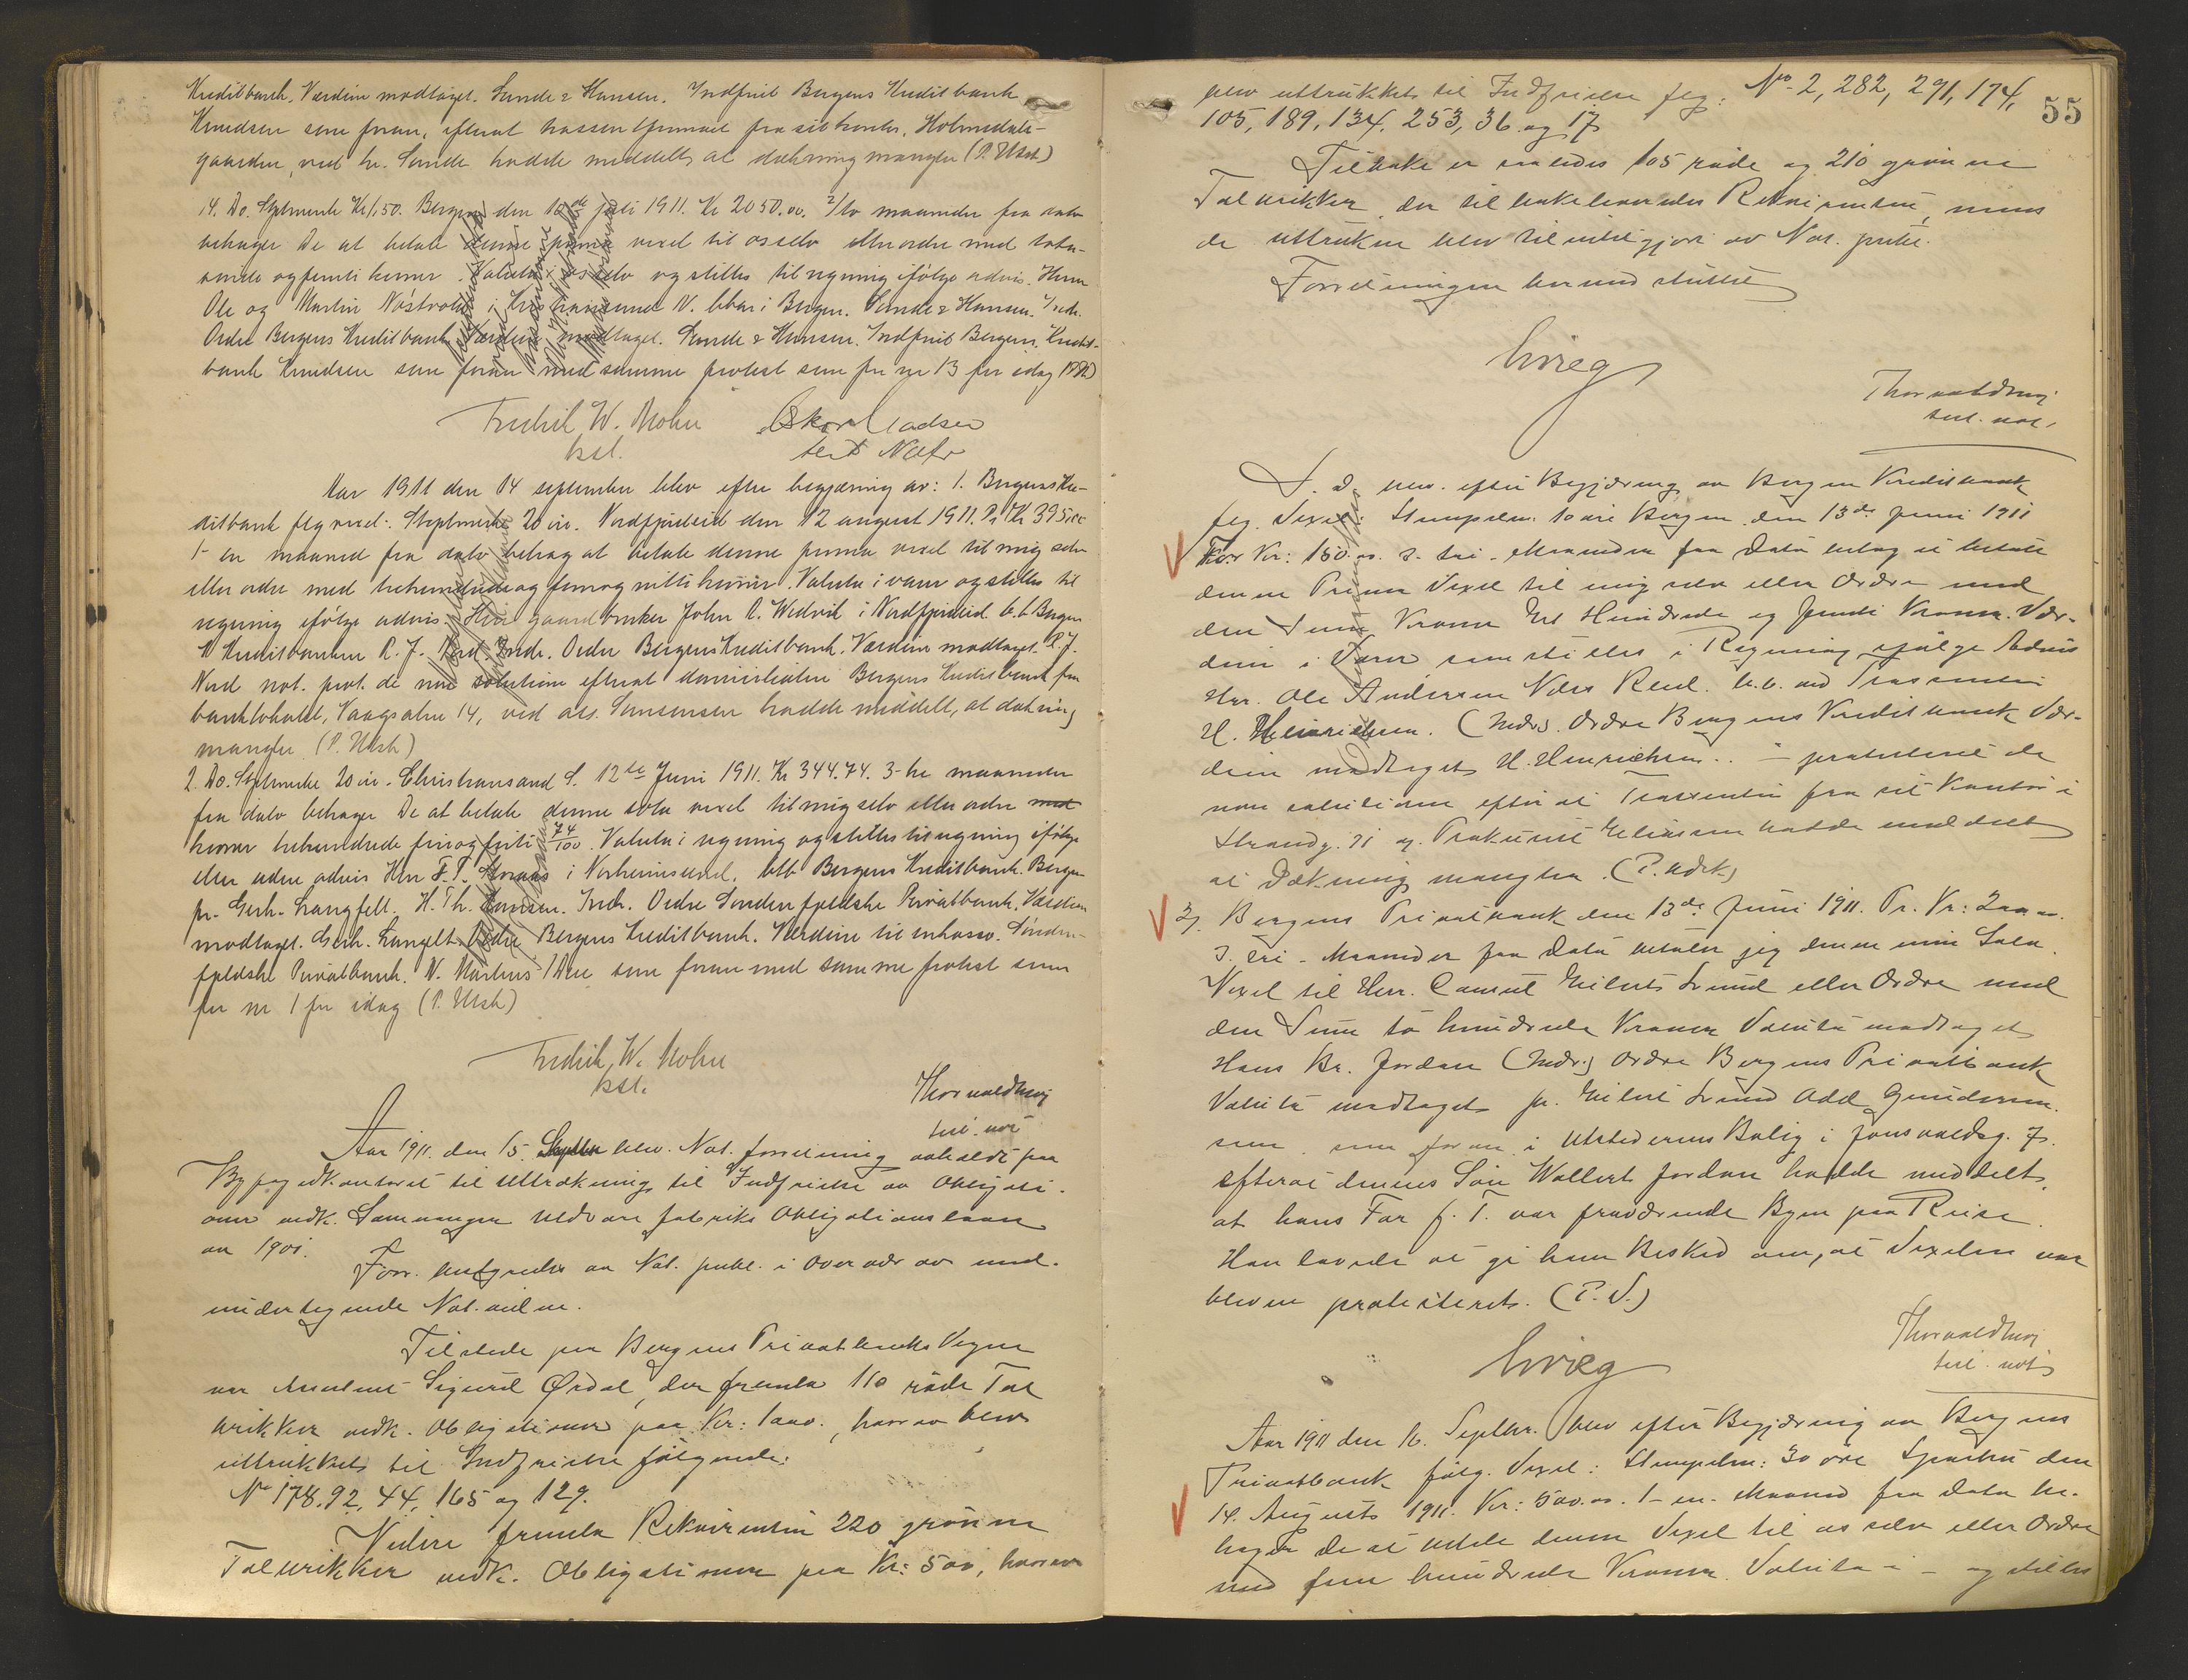 Kreditbank. Værdien modtaget. Sunde & Hansen. Indfriet Bergens Kreditbank
Knudsen som foran, efterat trassent firmaet fra sit kontor, Holmedals-
gaarden, ved hr. Sunde hadde meddelt, at dækning mangler (P. Utsk)
14. Do. Stplmerke Kr 1,50. Bergen den 10de juli 1911. Kr 2050.00. 2/to maaneder fra dato
behager De at betale denne prima vexel til os selv eller ordre med totu-
sinde og femti kroner. Valuta i os selv og stilles til regning ifølge advis. Herr
Ole og Martin Nøstvold i Kristianssund N. bbar i Bergen. Sunde & Hansen. Indr.
Ordre Bergens Kreditbank Værdien modtaget. Sunde & Hansen. Indfriet Bergens Kredit-
bank Knudsen som foran med samme protest som for nr 13 for idag (P. Utsk)
Fredrik W. Mohn Oskar Madsen
bst. test Notr
Aar 1911 den 14 september blev efter begjæring av: 1. Bergens Kre-
ditbank flg vexel: Steplmerke 20 øre. Nordfjordeid den 12 august 1911. Pr Kr 395,00
1- en maaned fra dato behag at betale denne prima vexel til mig selv
eller ordre med trehundrede og fem og nitti kroner. Valuta i varer og stilles til
regning ifølge advis. Herr gaardbruker John A. Wedvik i Nordfjordeid. b. b. Bergens
Kreditbanken R. J. Nord. Indr. Ordre Bergens Kreditbank. Værdien modtaget. R. J.
Nord not. prot. de non solutione efterat domiciliatin Bergens Kreditbank fra
banklokalet, Vaagsalm 14, ved ass. Simonsen hadde meddelt, at dækning
mangler (P. Utsk)
2. Do. Stplmerke 20 øre. Christiansand S. 12te Juni 1911. Kr 344.74. 3- tre maaneder
fra dato behager De at betale denne sola vexel til mig selv eller ordre med
kroner trehundrede firiogfirti 74/100. Valuta i regning og stilles til regning ifølge
eller uden advis Herr F. T. i Norheimsund. btb Bergens Kreditbank. Bergen
pr. Gerh. Langfelt. H. Th. Indr. Ordre Søndenfjeldske Privatbank. Værdien
modtaget. Gerh. Langfelt Ordre Bergens Kreditbank. Værdien til inkasso. Sønden-
fjeldske Privatbank. N. som foran med samme protest som
for nr 1 for idag (P. Utsk)
Fredrik W. Mohn
bst.
Thorvald
test. not
Aar 1911. den 15. Septbr blev. Not. forretning avholdt paa
Byfogedkontoret til Uttrækning til Indfrielse av Obligati-
oner vedk. Samnanger Uldvarefabriks Obligationslaan
av 1901.
Forr. bestyredes av Not. publ. i Overvær av med-
undertegnede Not. vidne.
Tilstede paa Bergens Privatbanks Vegne
var Assistent Sigurd Ørdal, der fremla 110 røde Tal
brikker vedk. Obligationer paa Kr: 1000., hvorav blev
uttrukket til Indfrielse følgende:
No 178, 92, 44, 165 og 129.
Videre fremla Rekvirenten 220 grønne
Talbrikker vedk. Obligationer paa Kr: 500, hvorav
55
blev uttrukket til Indfrielse flg: No 2, 282, 291, 174,
105, 189, 134, 253, 36 og 17
Tilbake er saaledes 105 røde og 210 grønne
Talbrikker, der tilbakeleveredes Rekvirenten, mens
de uttrukne blev tilintetgjort av Not. publ.
Forretningen hermed sluttet
Grieg
Thorvald
test. not.
S. D. blev efter Begjæring av Bergens Kreditbank
flg. Vexel: Stempelm. 10 øre Bergen den 13de Juni 1911
For Kr: 150.00. 3. tri. Maaneder fra Dato behag at betale
denne Prima Vexel til mig selv eller Ordre med
den Sum Kroner Et Hundrede og femti Kroner. Vær-
dien i Varer som stilles i Regning ifølge Advis
Hr. Ole Andersen Næss Rend. b. b. ved Trassenten
H. Heinrichsen. (Indr.) Ordre Bergens Kreditbank Vær-
dien modtaget H. Henrichsen. - protesteret de
non solutione efter at Trassenten fra sit Kontor i
Strandg. 71 v. Prokurist Eliassen hadde meddelt
at Dækning mangler. (P. Udsk)
2/. Bergens Privatbank den 13de Juni 1911. Pr. Kr: 200.00.
3. tri. Maaneder fra Dato betaler jeg denne min Sola
Vexel til Herr. Consul Eilert Lund eller Ordre med
den Sum to hundrede Kroner Valuta modtaget
Hans Br. Jordan (Indr.) Ordre Bergens Privatbank
Valuta modtaget pr. Eilert Lund Odd Gundersen.
som som foran i Utstederens Bolig i Jonsvoldsg. 7.
efterat dennes Søn Wollert Jordan hadde meddelt,
at hans Far f. T. var fraværende Byen paa Reise.
Han lovede at gi ham Besked om, at Vexelen var
bleven protesteret. (P. S.)
Grieg
Thorvald
test. not
Aar 1911 den 16. Septbr. blev efter Begjæring av Bergens
Privatbank følg. Vexel: Stempelm: 30 øre den
14. August 1911. Kr: 500.00. 1- en. Maaned fra Dato be-
hager De at betale denne Vexel til os selv eller Ordre
med fem hundrede Kroner. Valuta i - og stilles